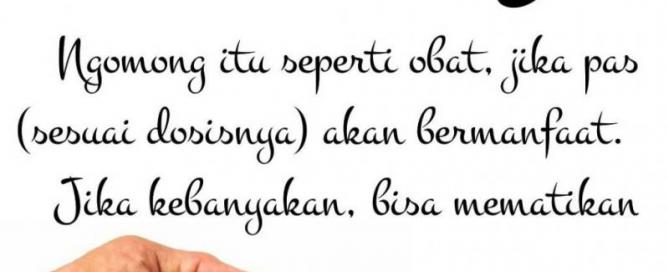 Ngomong itu seperti obat, jika pas
(sesuai dosisnya) akan bermanfaat.
Jika kebanyakan, bisa mematikan